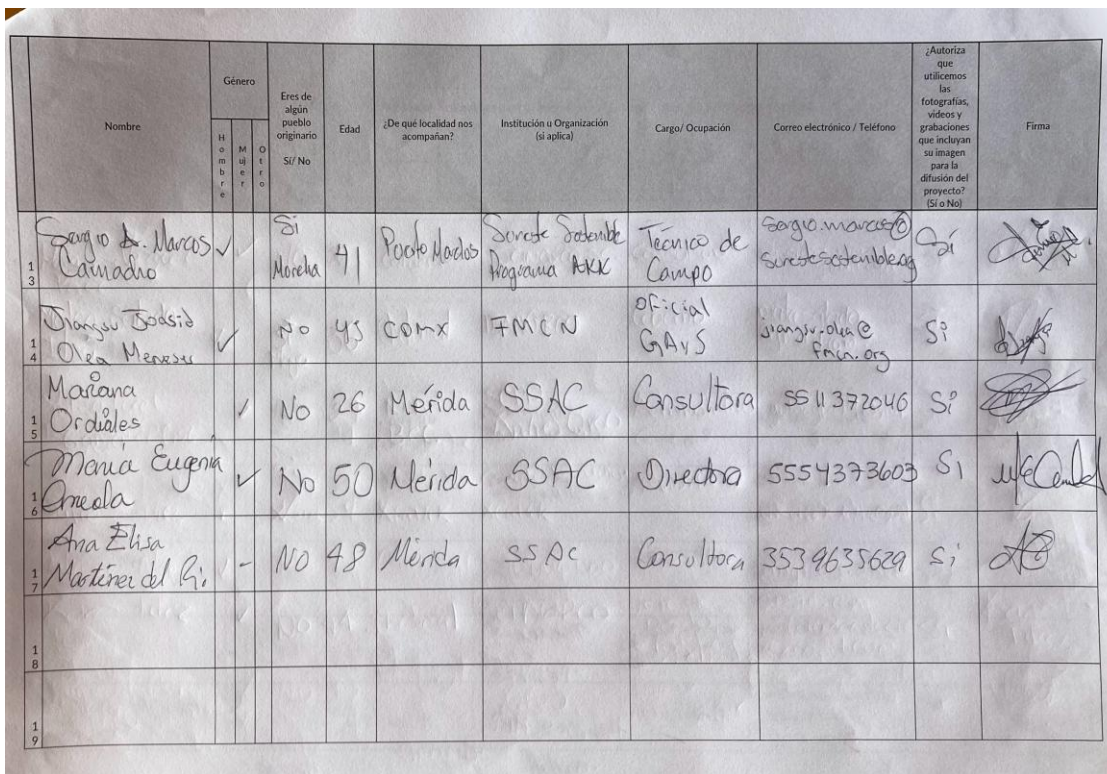 Nombre
Género
Hombre
Mujer
Otro
Eres de
algún
pueblo
originario
Sí/ No
Edad
¿De qué localidad nos
acompañan?
Institución u Organización
(si aplica)
Cargo/ Ocupación
Correo electrónico / Teléfono
¿Autoriza
que
utilicemos
las
fotografías,
videos y
grabaciones
que incluyan
su imagen
para la
difusión del
proyecto?
(Sí o No)
Firma
13
Sergio A. Marcos
✓
Si
41
Sureste Sostenible
Programa AKK
Técnico de
Campo
sergio.marcos@
surestesostenible.org
Sí
14
Jiangsu
Olea Meneses
✓
No
45
CDMX
FMCN
Oficial
GAyS
jiangsu.olea@
fmcn.org
Si
15
Mariana
Ordiales
✓
No
26
Mérida
SSAC
Consultora
5511372046
Si
16
María Eugenia
✓
No
50
Mérida
SSAC
Directora
5554373603
Si
17
Ana Elisa
Martínez del
-
No
48
Mérida
SSAC
Consultora
3539635629
Si
18
19